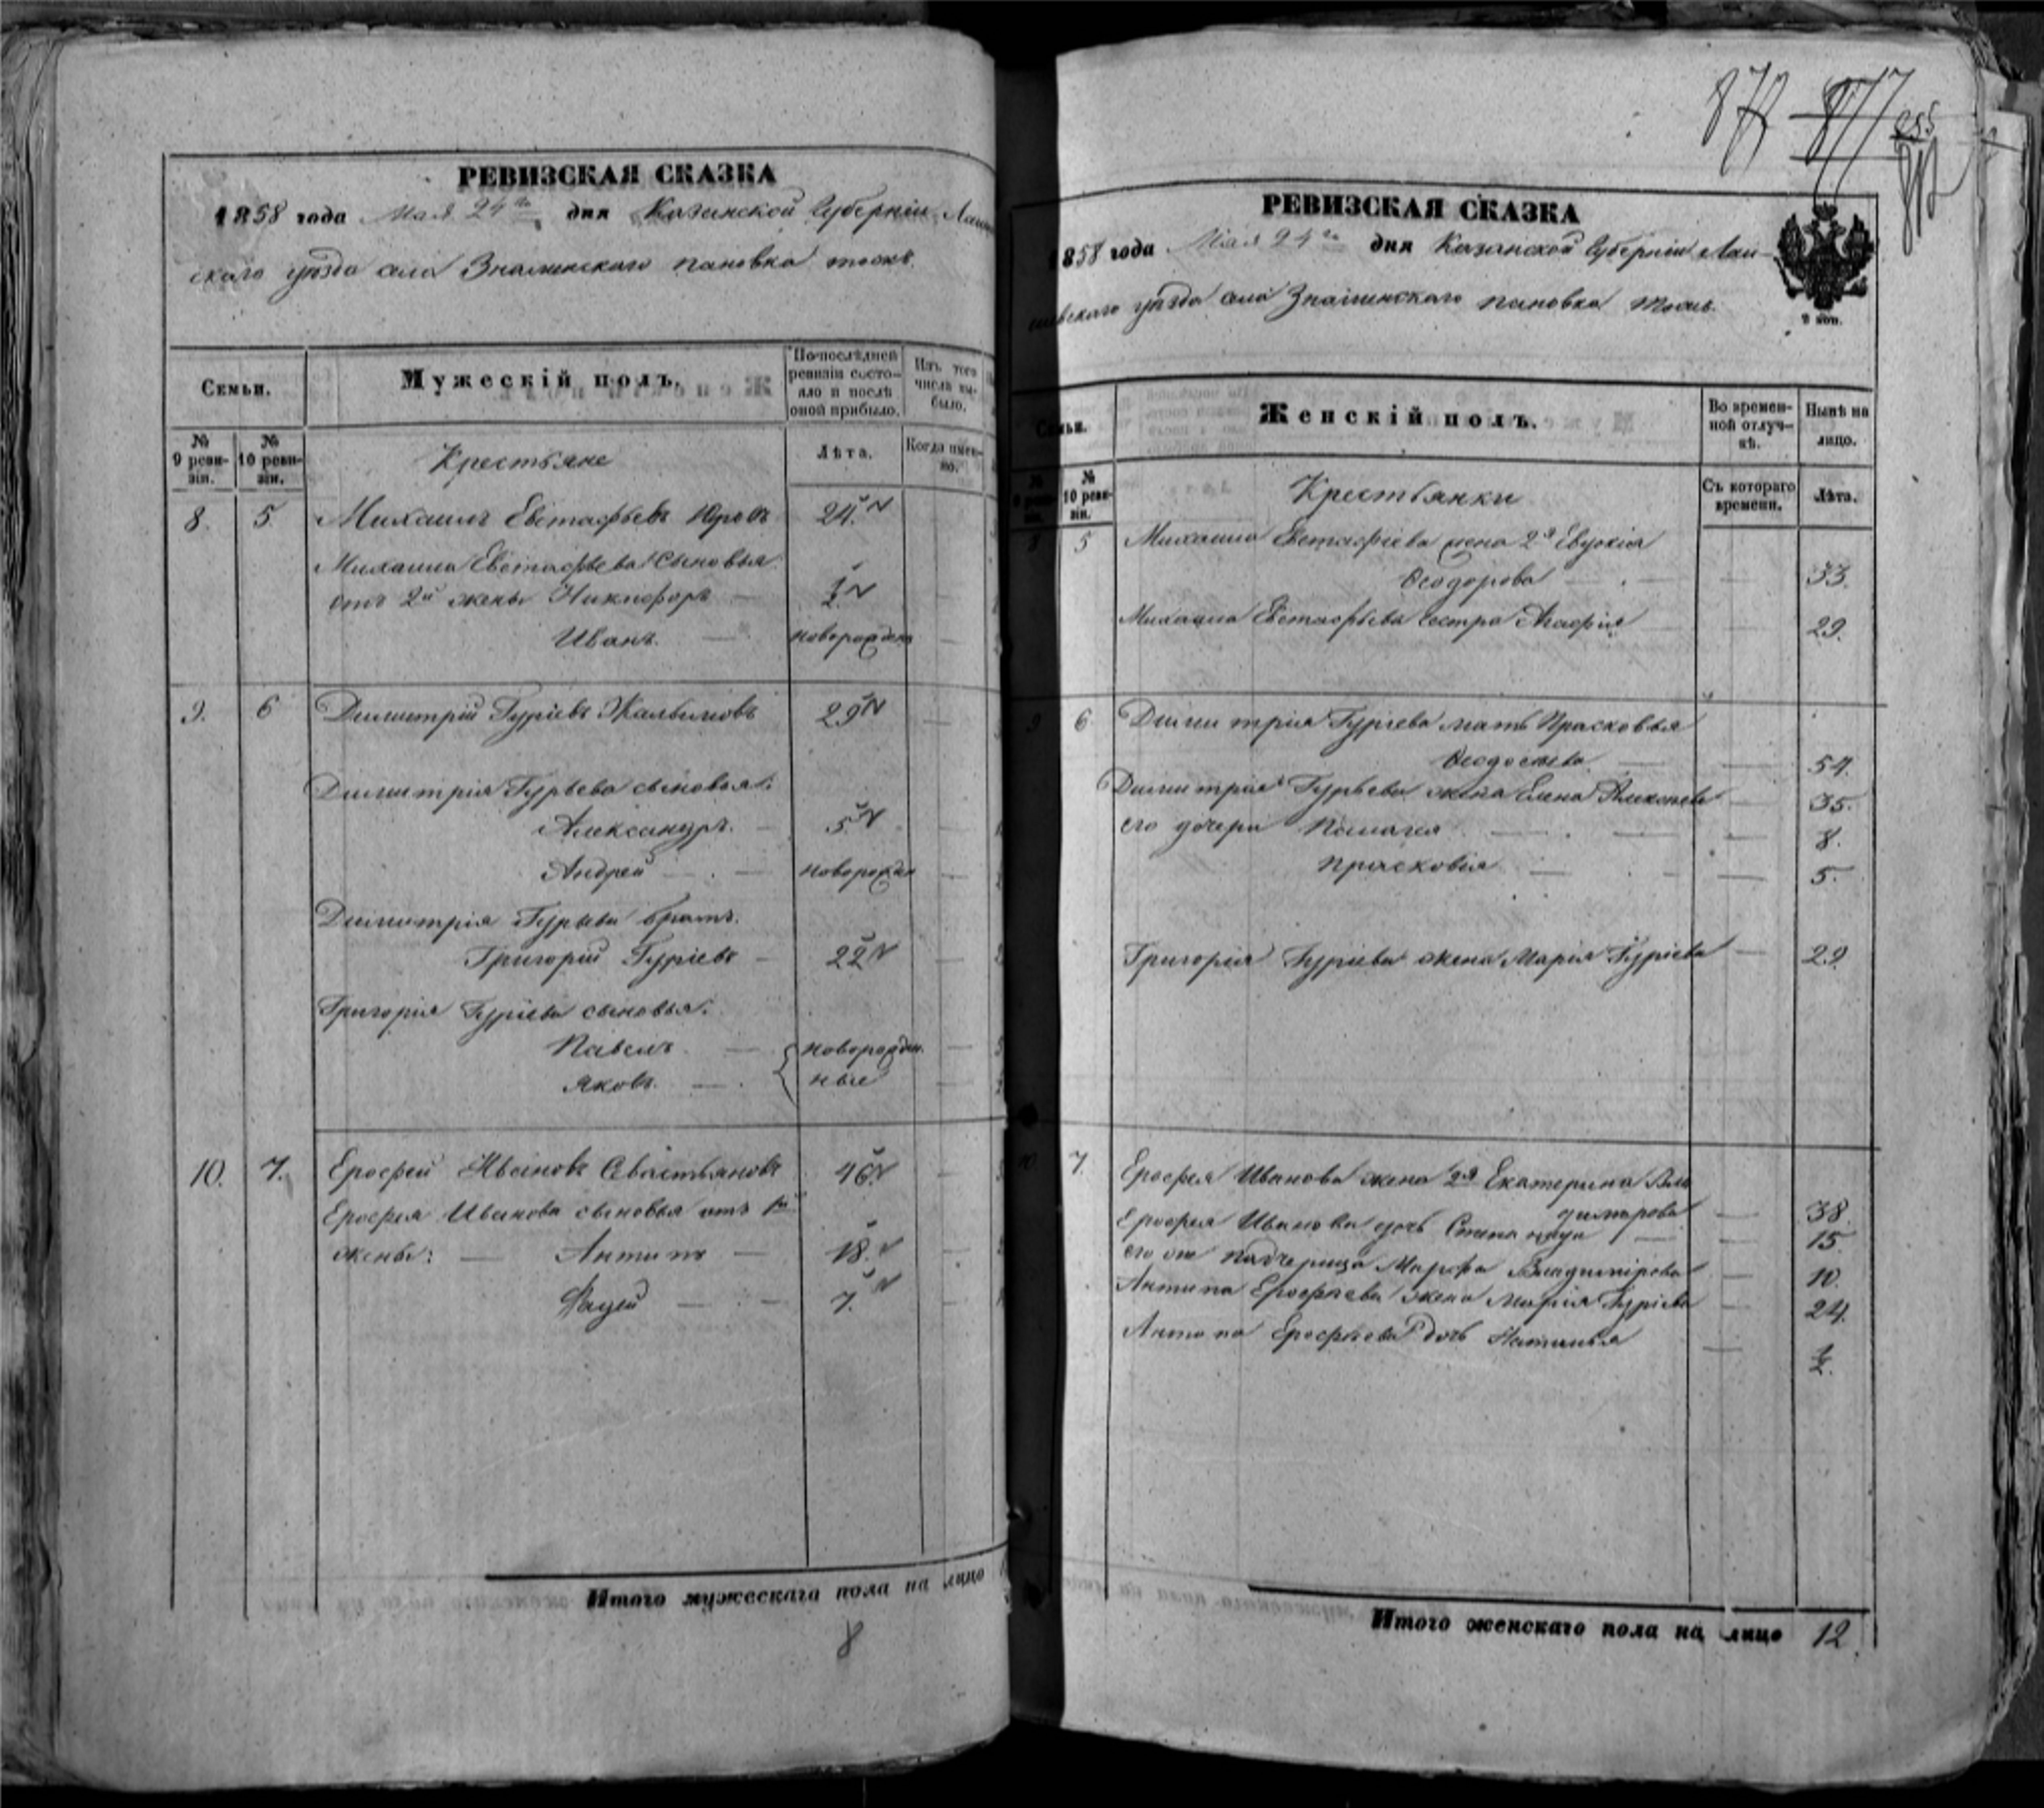 РЕВИЗСКАЯ СКАЗКА
1858 года Мая 24го дня Казанской Губерніи Лаи
скаго уѣзда села Знаменскаго Пановка тожъ.
Семьи.
Мужескій полъ.
По послѣдней ревизіи состояло и послѣ оной прибыло.
Изъ того числа выбыло.
№ 9 ревизіи.
№ 10 ревизіи.
Крестьяне
Лѣта.
Когда именно.
8. 5 Михаилъ Евстафьевъ Юровъ 24.
Михаила Евстафьева сыновья
отъ 2й жены Никифоръ — ½
Иванъ. — новорожден
9. 6 Димитрій Гуріевъ 29
Димитрія Гурьева сыновья:
Александръ. — 5
Андрей — новорожден
Димитрія Гурьева братъ.
Григорій Гуріевъ — 22
Григорія Гуріева сыновья:
Павелъ — новорожден
Яковъ. — ные
10. 7. Ерофей Ивановъ Севастьяновъ 46
Ерофея Иванова сыновья отъ 1й
жены: — Антипъ — 18.
Фадей — 7.
Итого мужескаго пола на лицо
8
872 877
РЕВИЗСКАЯ СКАЗКА
1858 года Мая 24го дня Казанской Губерніи Лаи-
шевскаго уѣзда села Знаменскаго Пановка тожъ.
2 коп.
Семьи.
Женскій полъ.
Во временной отлучкѣ.
Нынѣ на лицо.
№ 10 ревизіи.
Крестьянки
Съ котораго времени.
Лѣта.
8 5 Михаила Евстафіева жена 2я Евдокія
Ѳеодорова — 33.
Михаила Евстафьева сестра Агафія 29.
9 6 Димитрія Гуріева мать Прасковья
Ѳедосѣева — 54.
Димитрія Гурьева жена Елена Алексеева 35.
его дочери Палагея 8.
Прасковія 5.
Григорія Гуріева жена Марія Гуріева — 29.
10 7. Ерофея Иванова жена 2я Екатерина Вла
димірова — 38.
Ерофея Иванова дочь Степанида — 15.
его же падчерица Марфа Владимірова — 10.
Антипа Ерофѣева жена Марія Гуріева — 24.
Антипа Ерофѣева дочь Наталья — ½.
Итого женскаго пола на лицо 12.